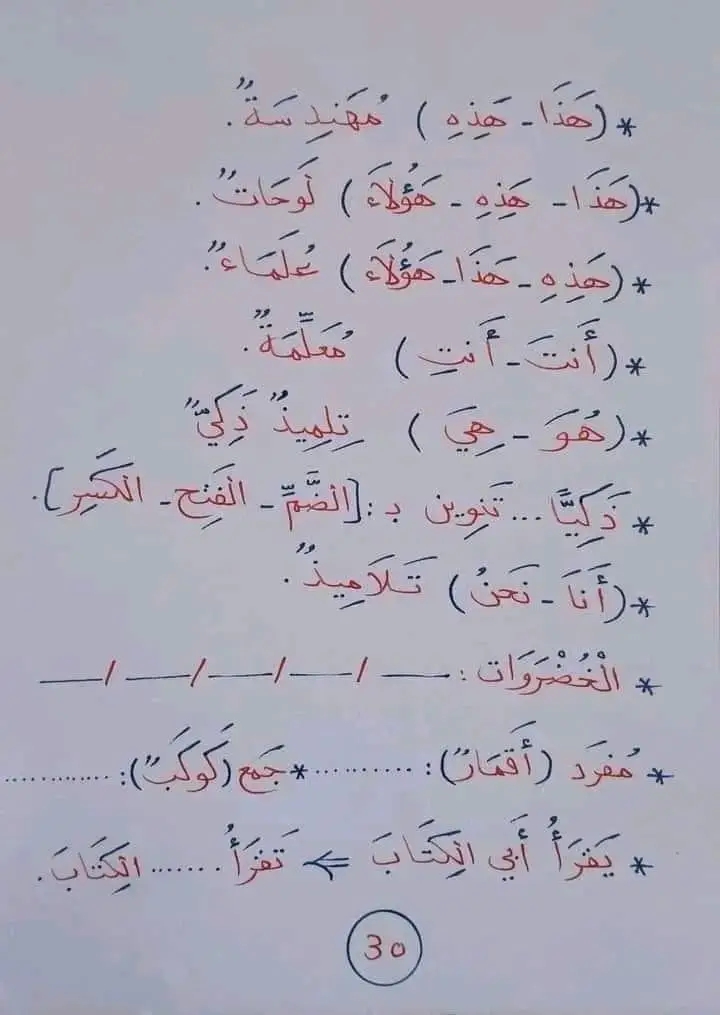 * (هَذَا - هَذِهِ) مُهَندِسَةٌ.
* (هَذَا - هَذِهِ - هَؤُلَاءَ) لَوحَاتٌ.
* (هَذِهِ - هَذَا - هَؤُلَاءَ) عُلَمَاءٌ.
* (أَنتَ - أَنتِ) مُعَلِّمَةٌ.
* (هُوَ - هِيَ) تِلمِيذٌ ذَكِيٌّ
* ذَكِيًّا ... تَنوِين بـ: [الضَّمِّ - الفَتِح - الكَسِر].
* (أَنَا - نَحنُ) تَلَامِيذٌ.
* الْخُضْرَوَات: ___ / ___ / ___ / ___ / ___
* مُفرَد (أَقمَارٌ): .......... * جَمع (كَوكَبٌ): ............
* يَقرَأُ أَبِي الكِتَابَ ⇐ تَقرَأُ ....... الكِتَابَ.
30